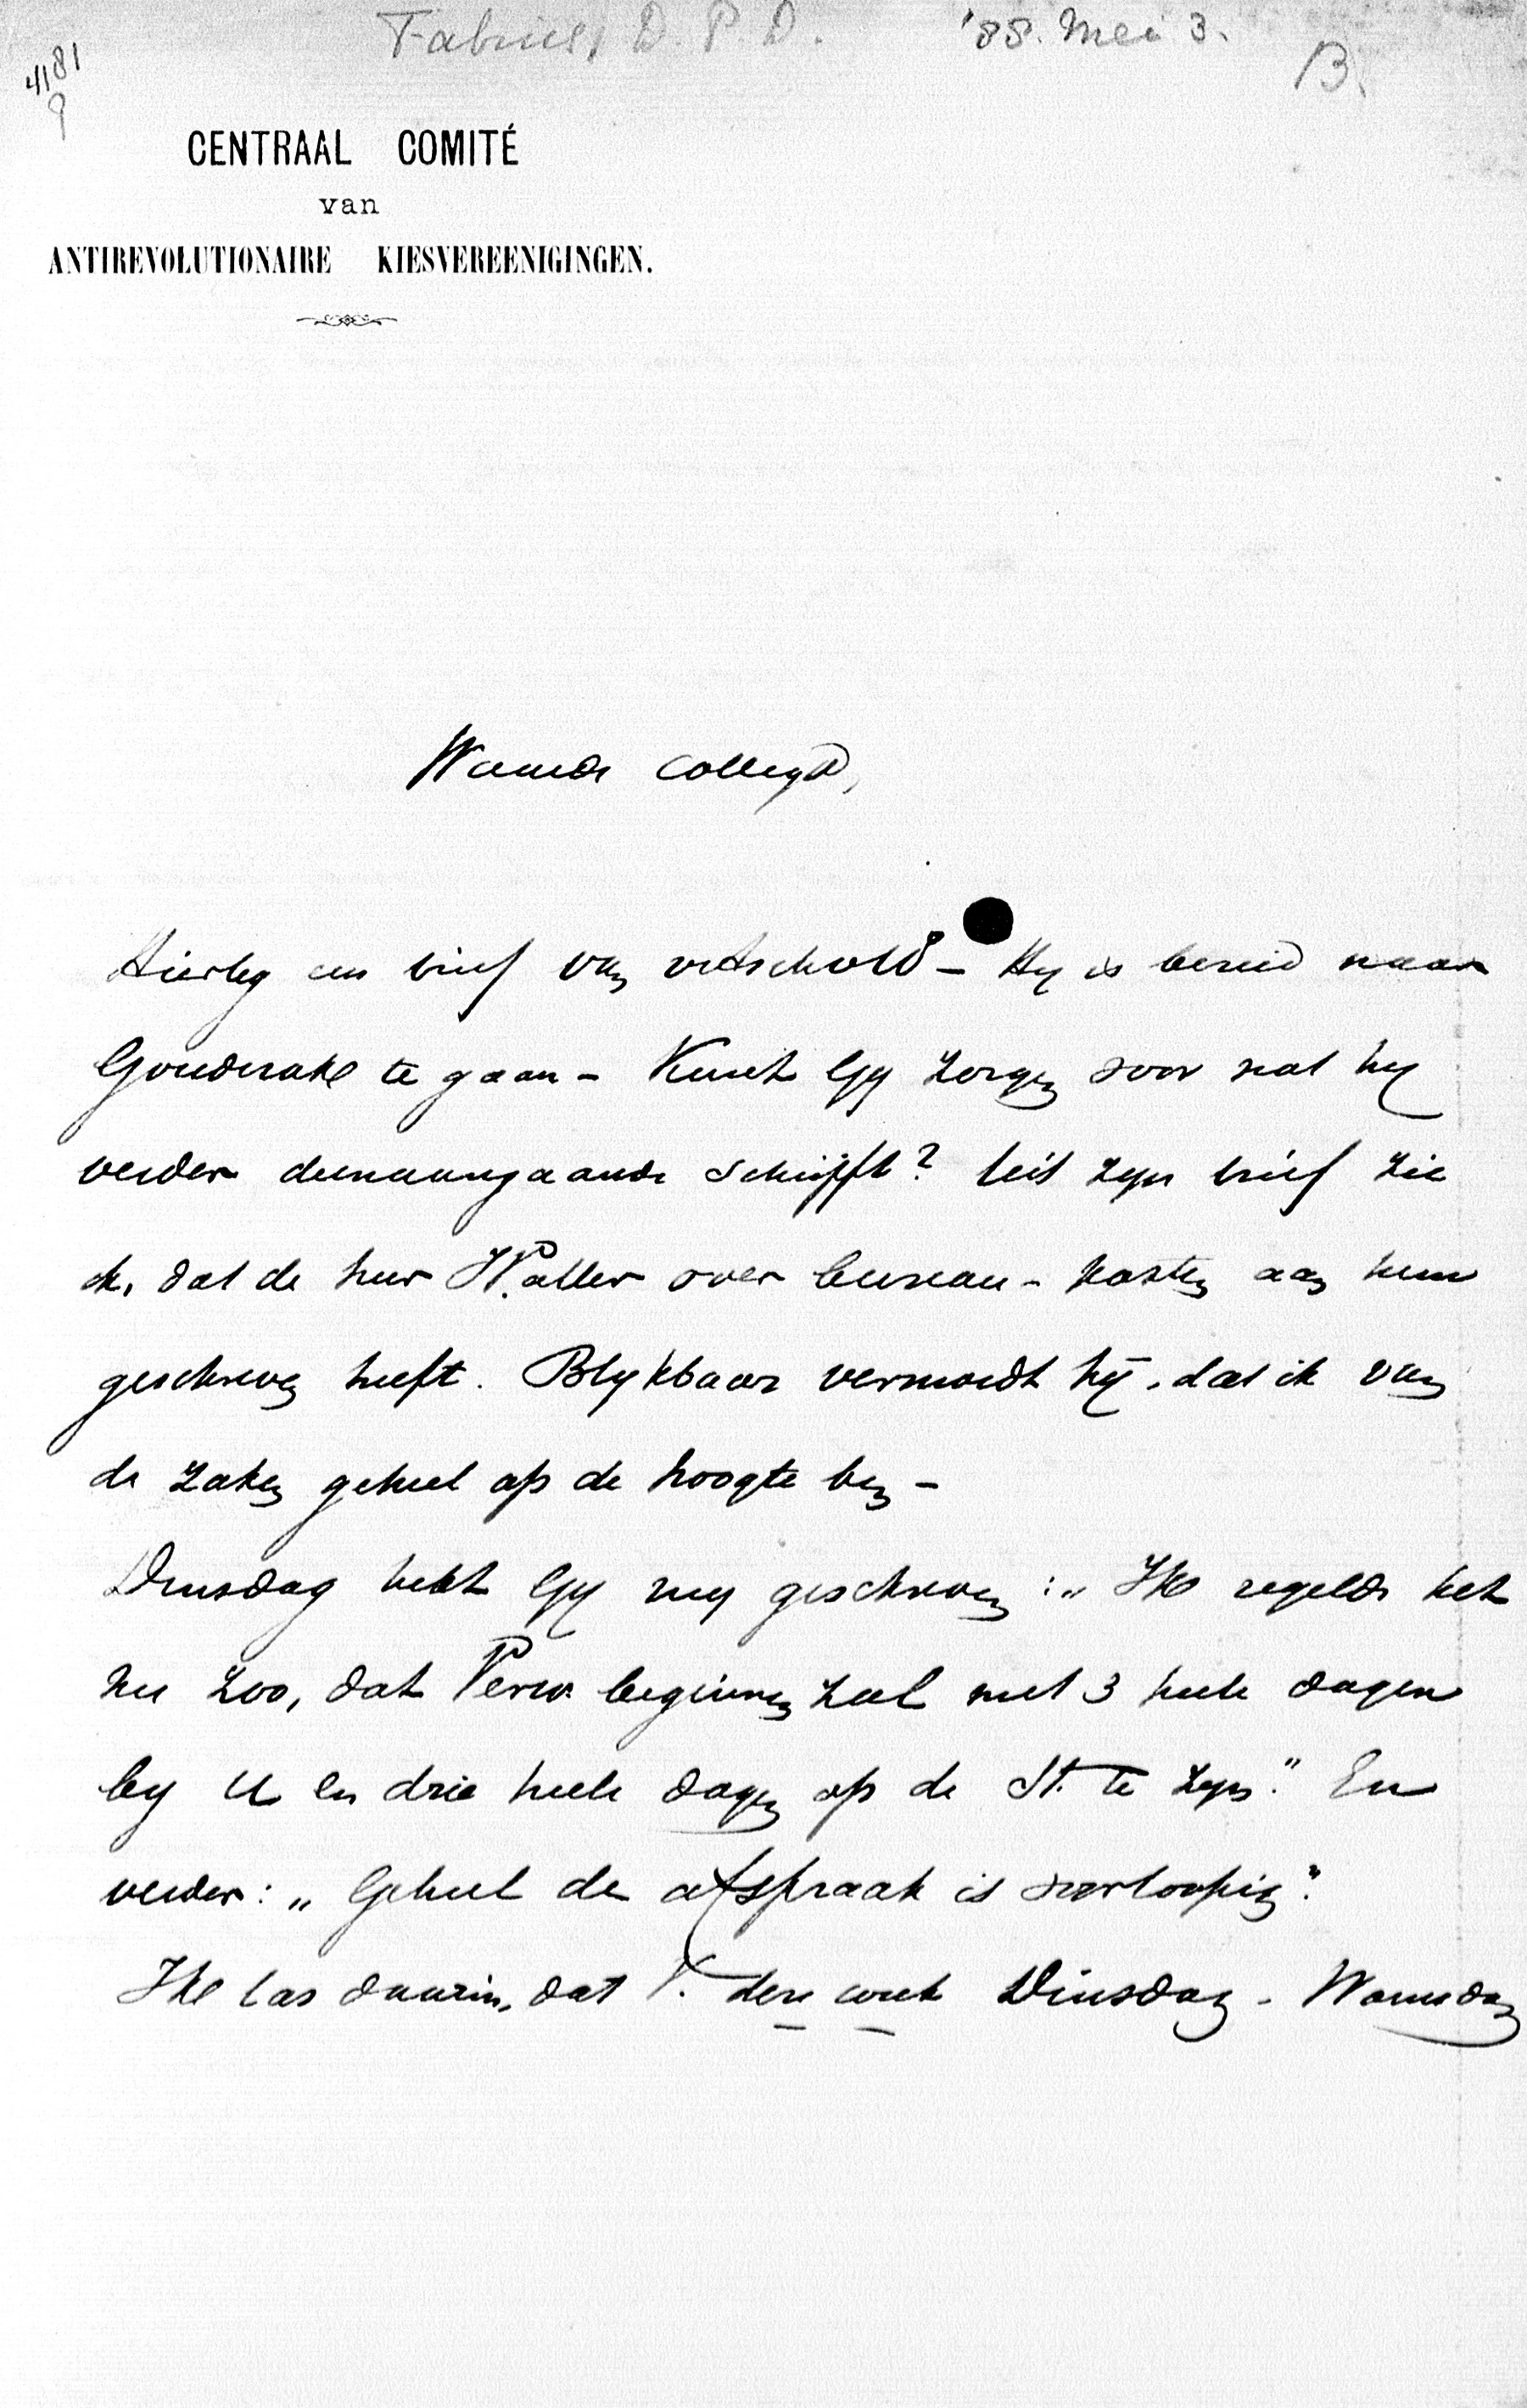 Fabius, D. P. D. '88. Mei 3.
B.
4181
9
CENTRAAL COMITÉ
van
ANTIREVOLUTIONAIRE KIESVEREENIGINGEN.
Waarde Collega,
Hierbij een brief van – Hij is bereid naar
Gouderake te gaan – Kunt Gij zorgen voor wat hij
verder dienaangaande schrijft? Uit zijn brief zie
ik, dat de heer Waller over bureau-kosten aan hem
geschreven heeft. Blijkbaar vermoedt hij, dat ik van
de zaken geheel op de hoogte ben –
Dinsdag hebt Gij mij geschreven: „Ik regelde het
nu zoo, dat Perw. beginnen zal met 3 heele dagen
bij U en drie heele dagen op de St. te zijn." En
verder: „Geheel de afspraak is voorloopig".
Ik las daarin, dat P. deze week Dinsdag – Woensdag